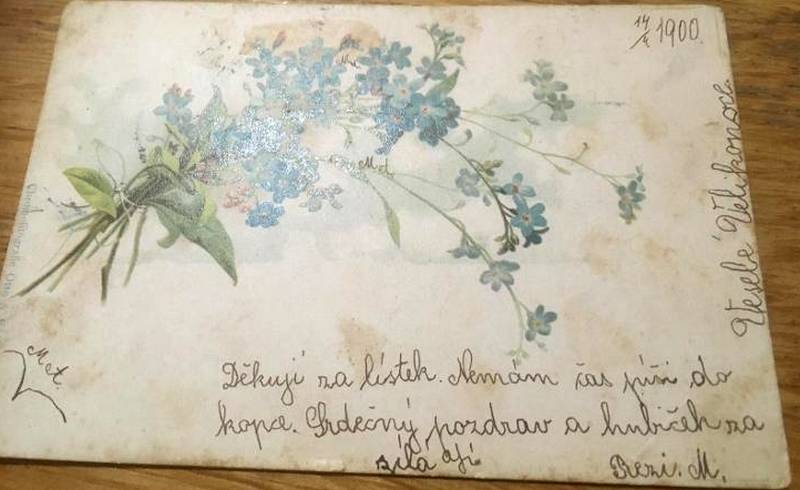 14/4 1900.
Veselé Velikonoce.
Met.
Met.
Děkuji za lístek. Nemám čas píši do
kopce. Srdečný pozdrav a hubiček za
sílá Vájí
Rezi. M.